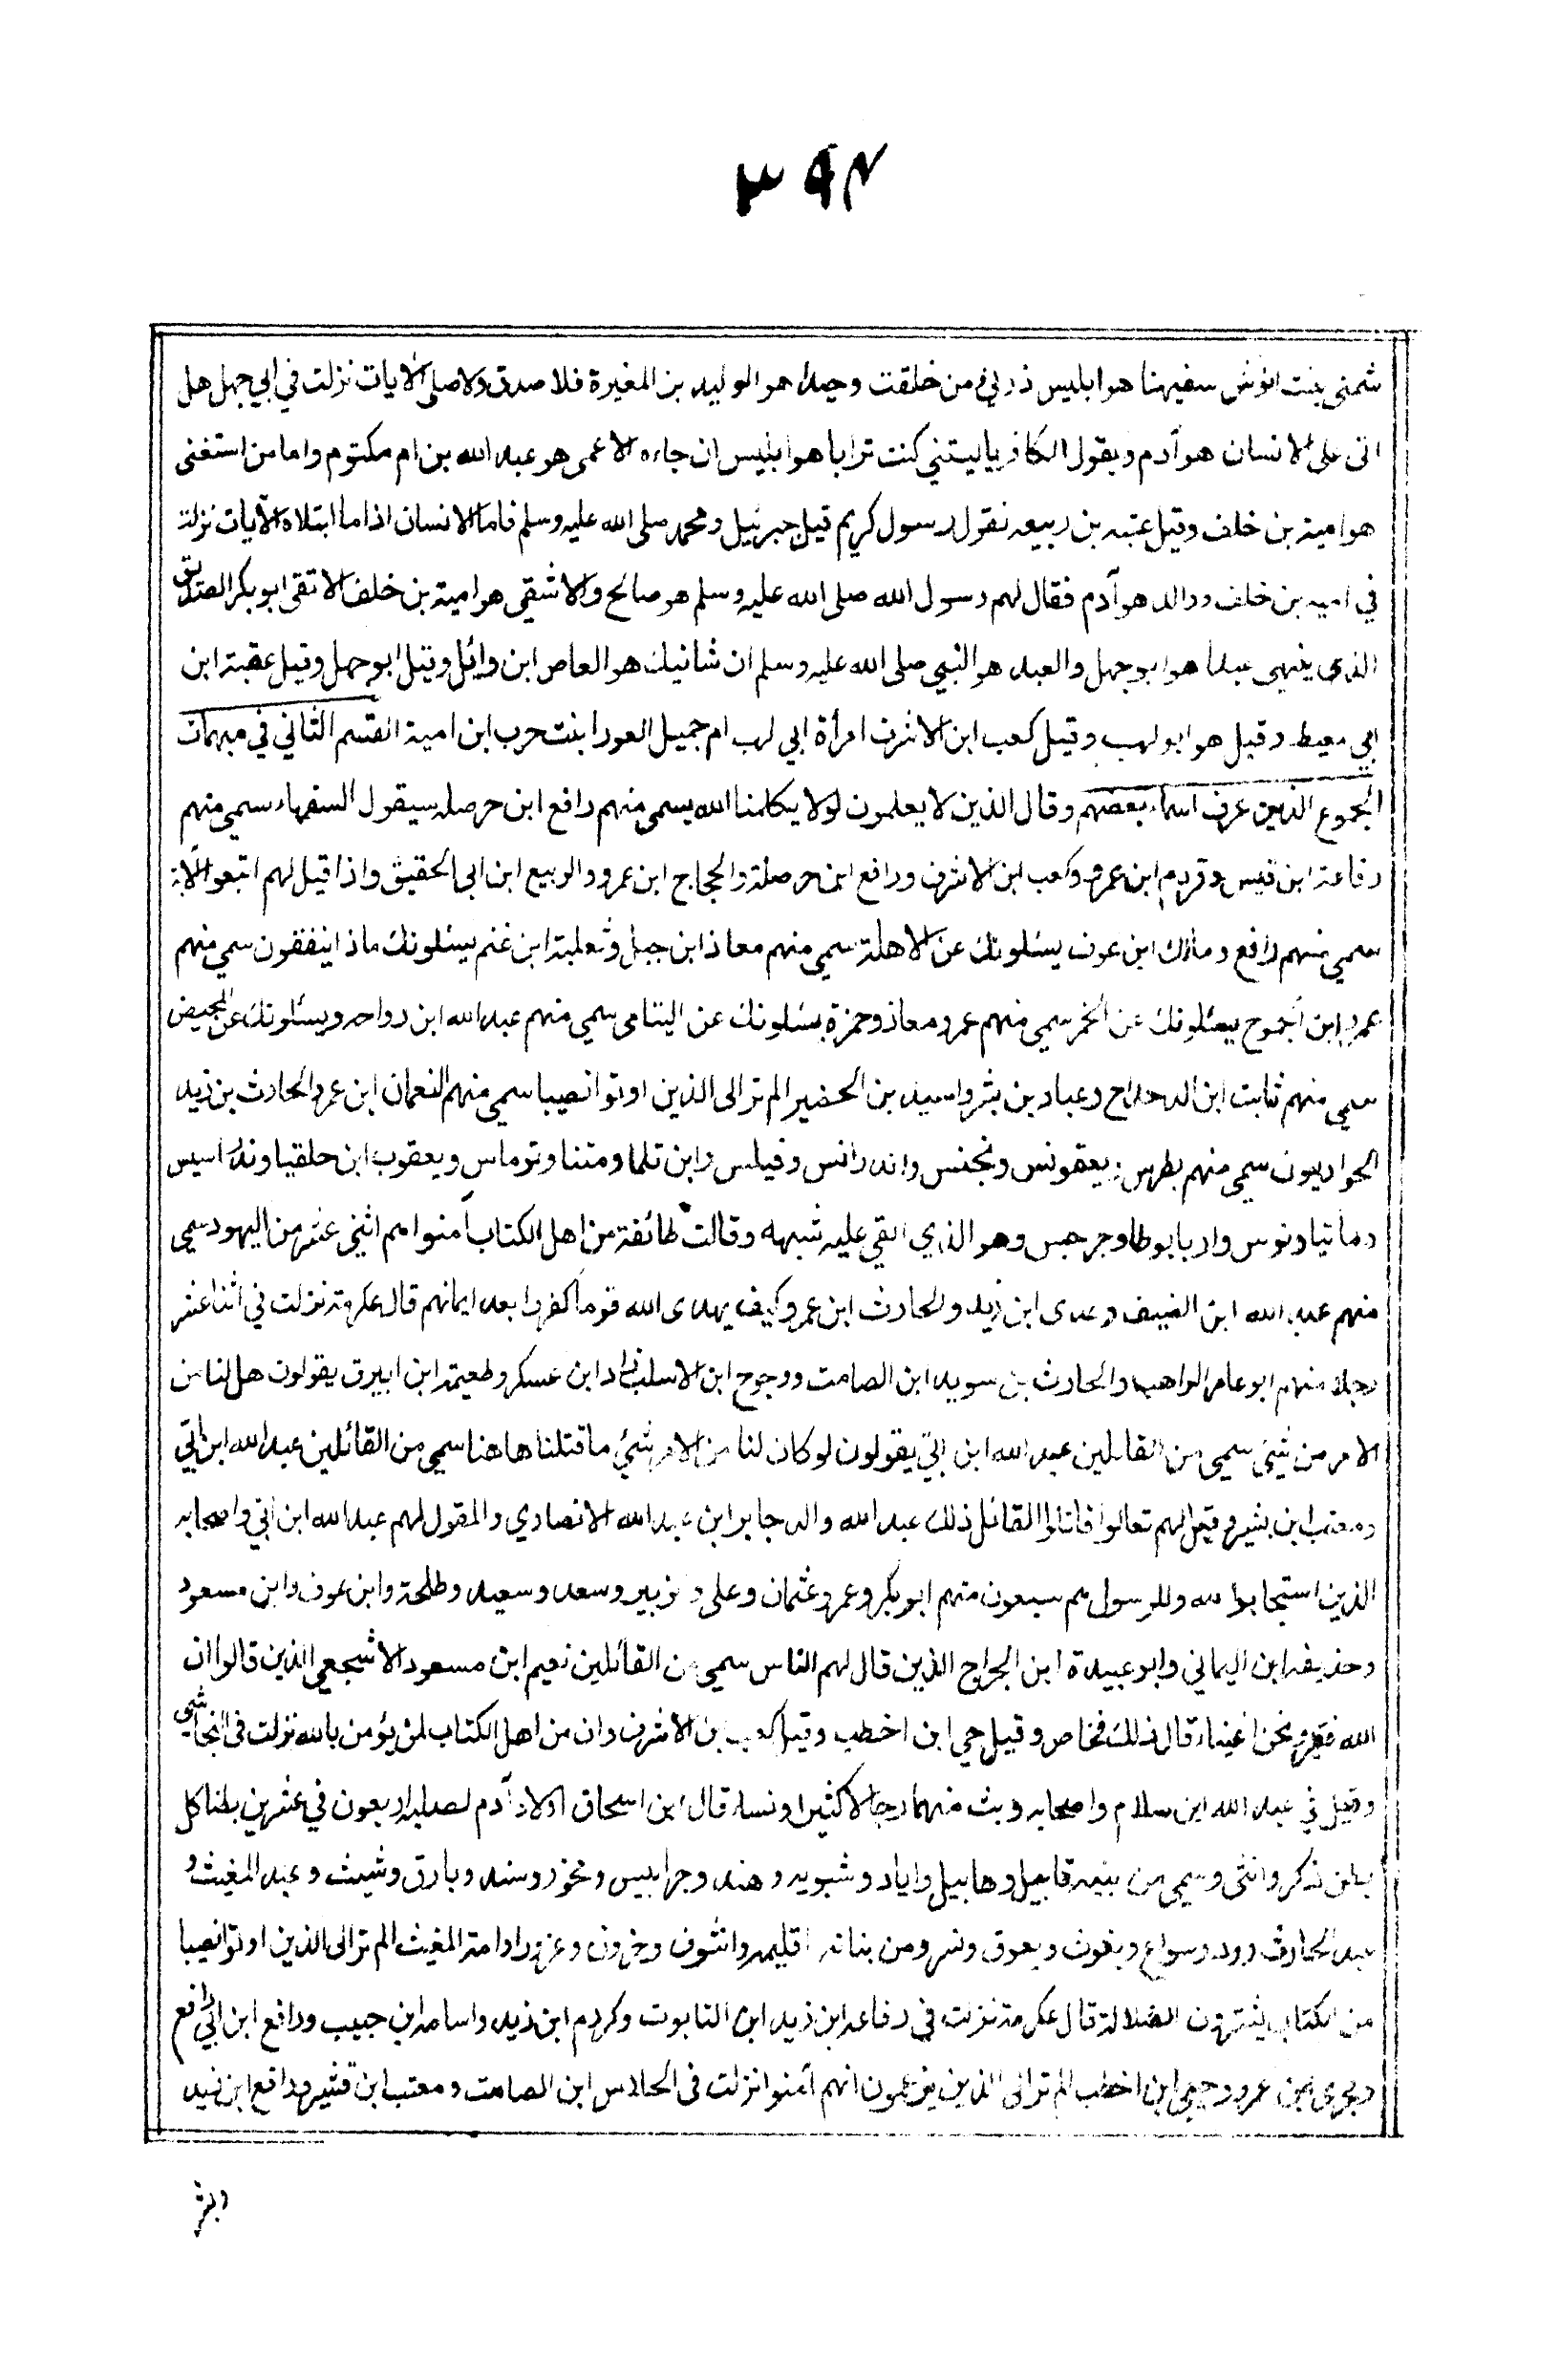 ٣٩٢
شمنى بنت انوش سفيهنا هو ابليس ذرني ومن خلقت وحيدا هو الوليد بن المغيرة فلا صدق ولا صلى الآيات نزلت في ابي جهل هل
اتى على الانسان هو آدم ويقول الكافر ياليتني كنت ترابا هو ابليس ان جاءه الاعمى هو عبد الله بن ام مكتوم واما من استغنى
هو امية بن خلف وقيل عتبه بن ربيعه نقول رسول كريم قيل جبرئيل ومحمد صلى الله عليه وسلم فاما الانسان اذا ما ابتلاه الآيات نزلت
في اميه بن خلف ووالد هو آدم فقال لهم رسول الله صلى الله عليه وسلم هو صالح والاشقى هو امية بن خلف الاتقى ابو بكر الصديق
الذي ينهى عبدا هو ابو جهل والعبد هو النبي صلى الله عليه وسلم ان شانيك هو العاص ابن وائل وقيل ابو جهل وقيل عقبة ابن
ابي معيط وقيل هو ابو لهب وقيل كعب ابن الاشرف امرأة ابي لهب ام جميل العورا بنت حرب ابن امية القسم الثاني في مبهمات
الجموع الذين عرف اسماء بعضهم وقال الذين لا يعلمون لولا يكلمنا الله يسمى منهم رافع ابن حرصله سيقول السفهاء سمي منهم
رفاعة ابن قيس وقردم ابن عمرو وكعب ابن الاشرف ورافع ابن حرصلة والحجاج ابن عمرو والربيع ابن ابي الحقيق واذا قيل لهم اتبعوا الآية
سمي منهم رافع ومالك ابن عوف يسئلونك عن الاهلة سمي منهم معاذ ابن جبل وثعلبة ابن غنم يسئلونك ماذا ينفقون سمي منهم
عمرو ابن الجموح يسئلونك عن الخمر سمي منهم عمر ومعاذ وحمزة يسئلونك عن اليتامى سمي منهم عبد الله ابن رواحه ويسئلونك عن المحيض
سمي منهم ثابت ابن الدحداح وعباد بن بشر واسيد بن الحضير الم تر الى الذين اوتوا نصيبا سمي منهم النعمان ابن عمرو والحارث بن زيد
الحواريون سمي منهم بطرس ويعقونس ونحنس واندرانس وفيلس وابن تلما ومتنا وتوماس ويعقوب ابن حلقيا ونداسيس
وماتيا ونوس واربابوطا وجرجس وهو الذي القي عليه شبهه وقالت طائفة من اهل الكتاب آمنوا هم اثني عشر من اليهود سمي
منهم عبد الله ابن الضيف وعدى ابن زيد والحارث ابن عمرو كيف يهدى الله قوما كفروا بعد ايمانهم قال عكرمة نزلت في اثنا عشر
رجلا منهم ابو عامر الراهب والحارث بن سويد ابن الصامت ووحوح ابن الاسلت زاد ابن عسكر وطعيمة ابن ابيرق يقولون هل لنا من
الامر من شيئ سمي من القائلين عبد الله ابن ابي يقولون لو كان لنا من الامر شيئ ما قتلنا هاهنا سمي من القائلين عبد الله ابن ابي
ومعتب ابن بشير وقيل لهم تعالوا قاتلوا القائل ذلك عبد الله والد جابر ابن عبد الله الانصاري والمقول لهم عبد الله ابن ابي واصحابه
الذين استجابوا لله وللرسول هم سبعون منهم ابو بكر وعمر وعثمان وعلى وزبير وسعد وسعيد وطلحة وابن عوف وابن مسعود
وحذيفه ابن اليماني وابو عبيدة ابن الجراح الذين قال لهم الناس سمي من القائلين نعيم ابن مسعود الاشجعي الذين قالوا ان
الله فقير ونحن اغنياء قال ذلك فخاص وقيل حي ابن اخطب وقيل كعب بن الاشرف وان من اهل الكتاب لمن يؤمن بالله نزلت في النجاشي
وقيل في عبد الله ابن سلام واصحابه وبث منهما رجالا كثيرا ونساء قال ابن اسحاق اولاد آدم لصلبه اربعون في عشرين بطنا كل
بطن ذكر وانثى وسمي من بنيه قابيل وهابيل واياد وشبويه وهند وجرابيس ونخور وسند وبارق وشيث وعبد المغيث و
عبد الحارث وود وسواع ويغوث ويعوق ونسر ومن بناته اقليمه واشوف وخزون وعزورا وامة المغيث الم تر الى الذين اوتوا نصيبا
من الكتاب يشترون الضلالة قال عكرمة نزلت في رفاعه ابن زيد ابن التابوت وكردم ابن زيد واسامه ابن حبيب ورافع ابن ابي رافع
وبحرى ابن عمرو وحيي ابن اخطب الم تر الى الذين يزعمون انهم آمنوا نزلت في الجلاس ابن الصامت ومعتب ابن قشير ورافع ابن زيد
وبشر